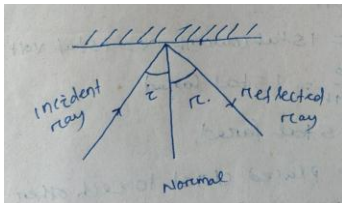 incident
ray
i
r.
reflected
ray
Normal